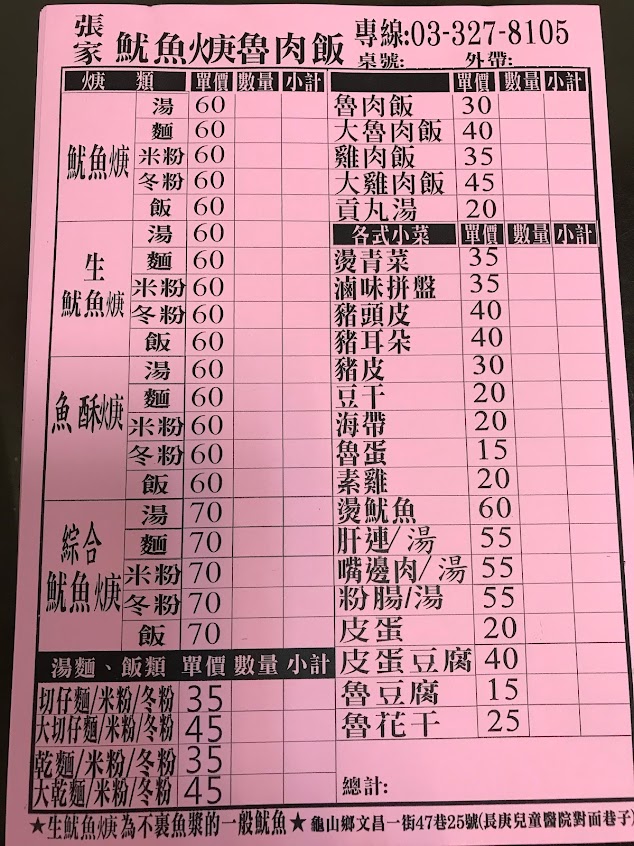 張家 魷魚焿魯肉飯 專線:03-327-8105
桌號: 外帶:
焿 類 單價 數量 小計
魷魚焿 湯 60
麵 60
米粉 60
冬粉 60
飯 60
生魷魚焿 湯 60
麵 60
米粉 60
冬粉 60
飯 60
魚酥焿 湯 60
麵 60
米粉 60
冬粉 60
飯 60
綜合魷魚焿 湯 70
麵 70
米粉 70
冬粉 70
飯 70
湯麵、飯類 單價 數量 小計
切仔麵/米粉/冬粉 35
大切仔麵/米粉/冬粉 45
乾麵/米粉/冬粉 35
大乾麵/米粉/冬粉 45
單價 數量 小計
魯肉飯 30
大魯肉飯 40
雞肉飯 35
大雞肉飯 45
貢丸湯 20
各式小菜 單價 數量 小計
燙青菜 35
滷味拼盤 35
豬頭皮 40
豬耳朵 40
豬皮 30
豆干 20
海帶 20
魯蛋 15
素雞 20
燙魷魚 60
肝連/湯 55
嘴邊肉/湯 55
粉腸/湯 55
皮蛋 20
皮蛋豆腐 40
魯豆腐 15
魯花干 25
總計:
★生魷魚焿為不裹魚漿的一般魷魚★ 龜山鄉文昌一街47巷25號(長庚兒童醫院對面巷子)